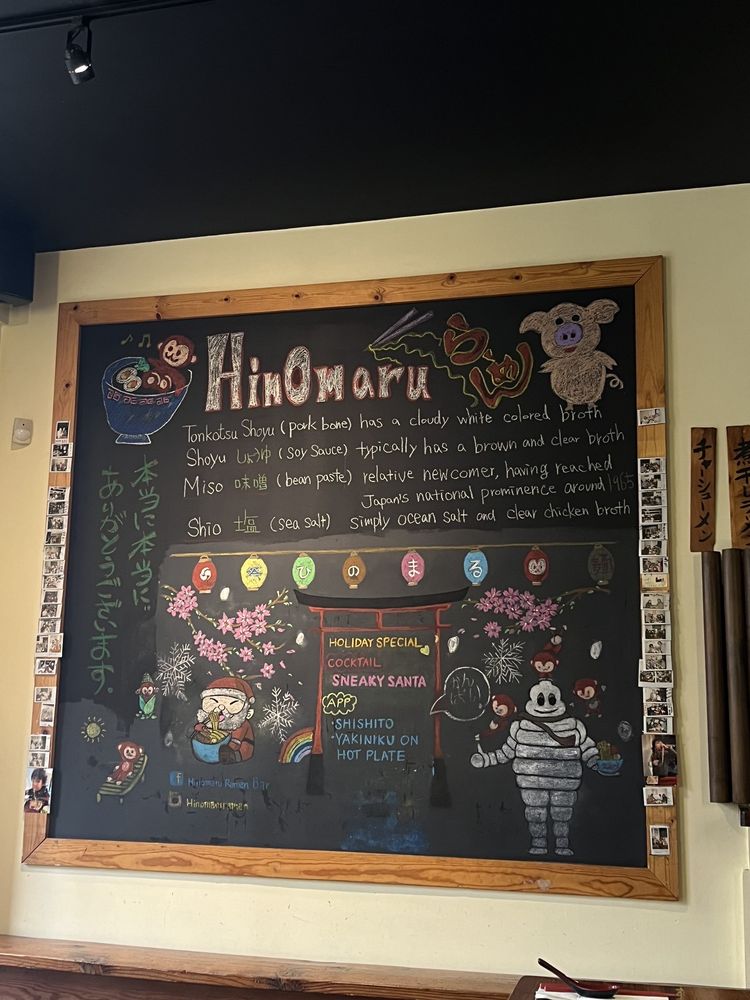 HinOmaru
らーめん
Tonkotsu Shoyu (pork bone) has a cloudy white colored broth
Shoyu しょうゆ (Soy Sauce) typically has a brown and clear broth
Miso 味噌 (bean paste) relative newcomer, having reached
Japan's national prominence around 1965
Shio 塩 (sea salt) simply ocean salt and clear chicken broth
本当に本当に
ありがとうございます。
ひのまる
HOLIDAY SPECIAL
COCKTAIL
SNEAKY SANTA
APP
SHISHITO
YAKINIKU ON
HOT PLATE
f Hinomaru Ramen Bar
Hinomaruramen
チャーシューメン